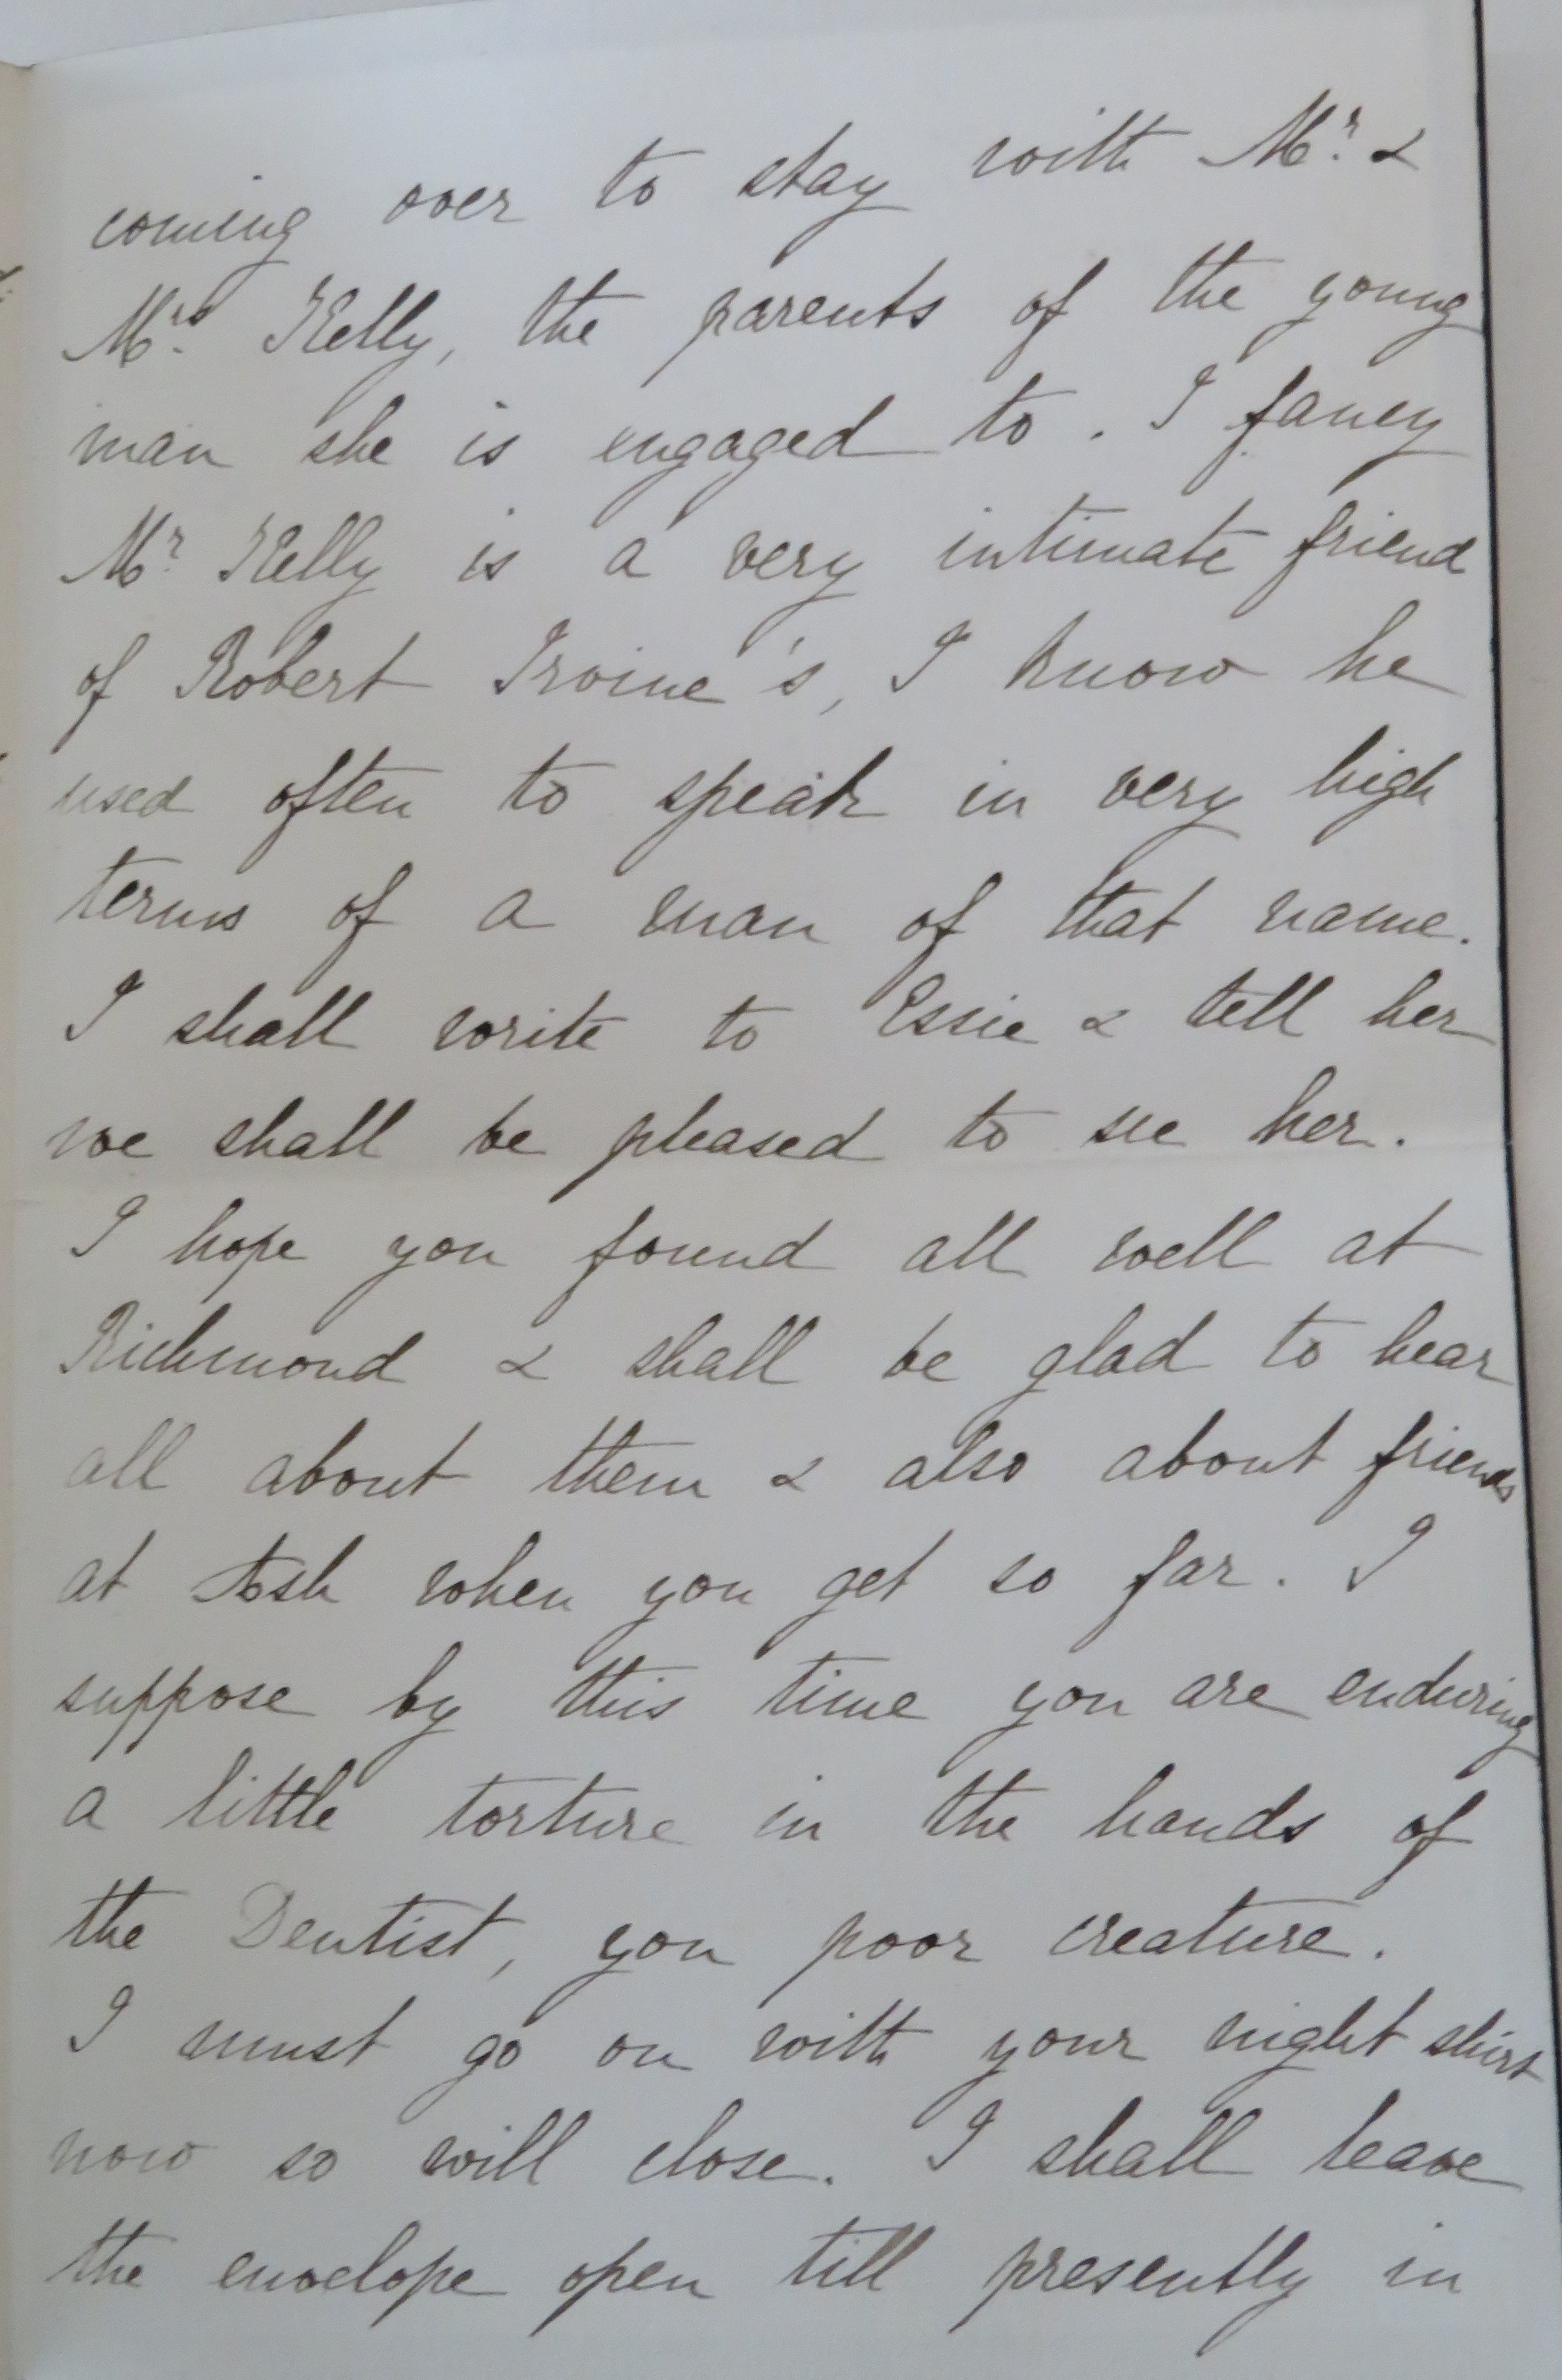 coming over to stay with Mr. &
Mrs. Kelly, the parents of the young
man she is engaged to. I fancy
Mr. Kelly is a very intimate friend
of Robert Irvine's, I know he
used often to speak in very high
terms of a man of that name.
I shall write to Essie & tell her
we shall be pleased to see her.
I hope you found all well at
Richmond & shall be glad to hear
all about them & also about friends
at Ash when you get so far. I
suppose by this time you are enduring
a little torture in the hands of
the Dentist, you poor creature.
I must go on with your night shirt
now so will close. I shall leave
the envelope open till presently in